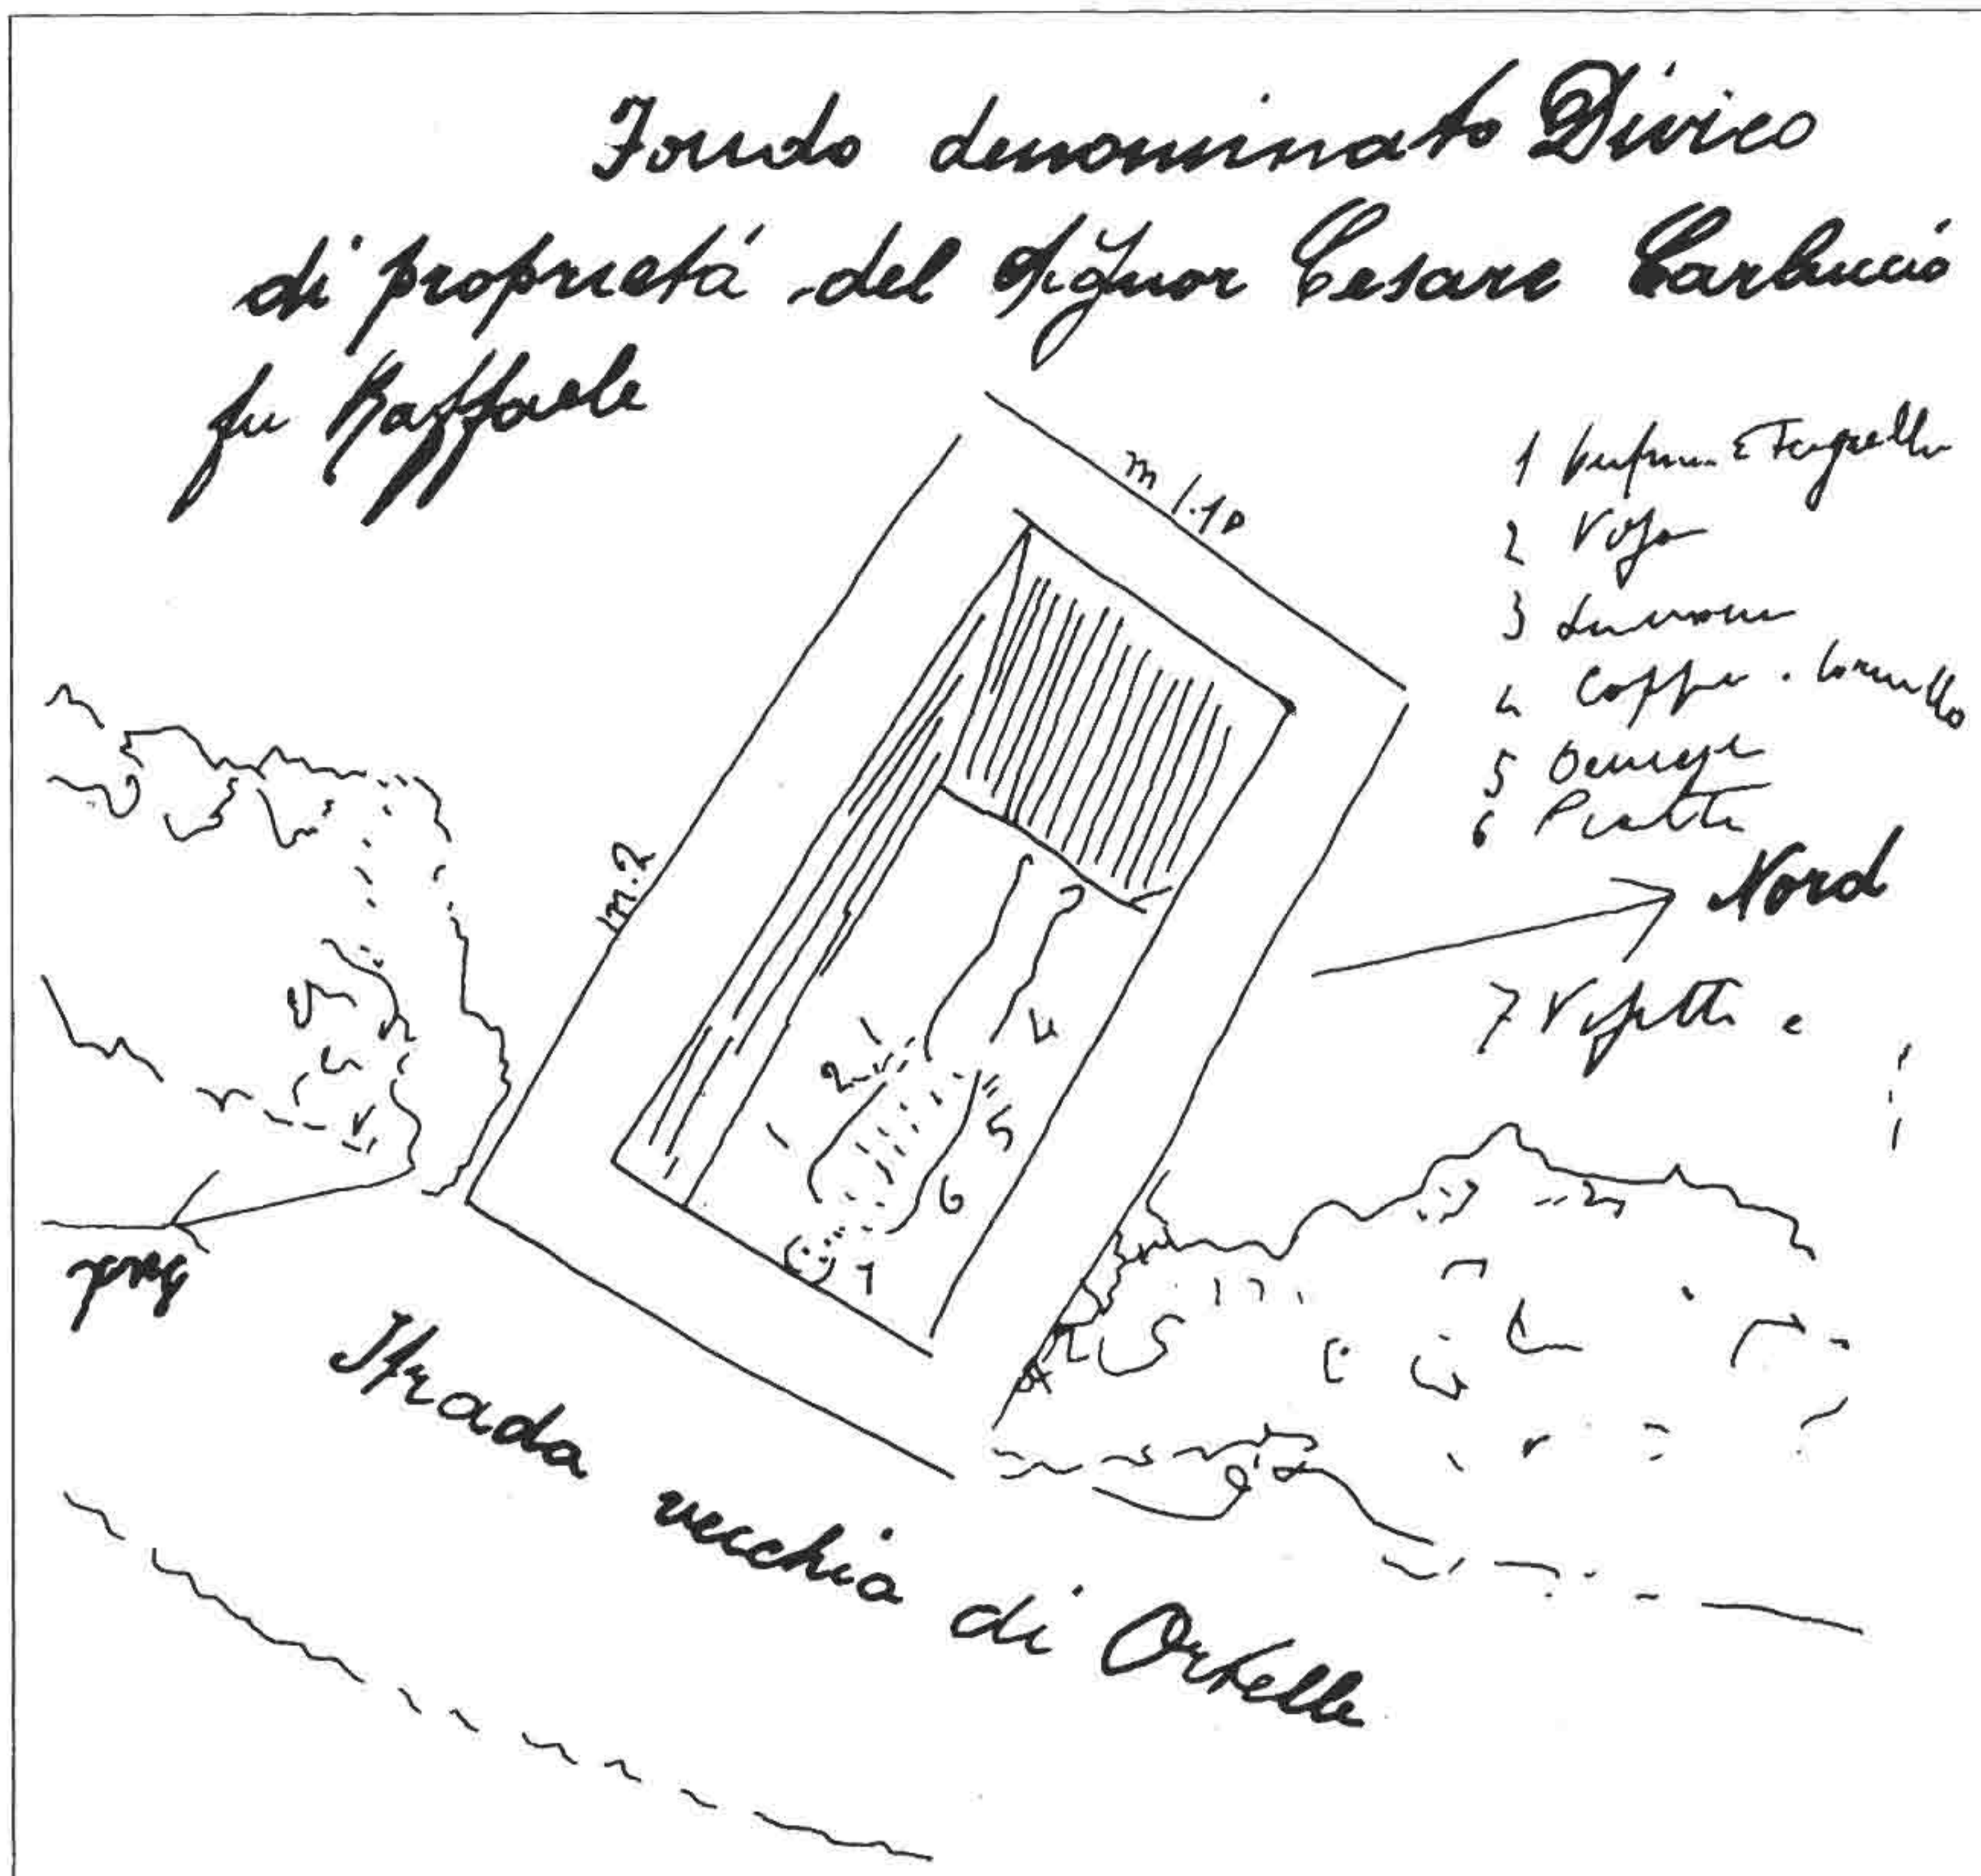 Fondo denominato Divico
di proprietá del Signor Cesare Carluccio
fu Raffaele
m 1.10
m. 2
1
2 Vaso
3
4 Coppa
5
6 Piatto
Nord
7 Vasetti e
2
4
5
6
7
Sud
Strada vecchia di Ortelle